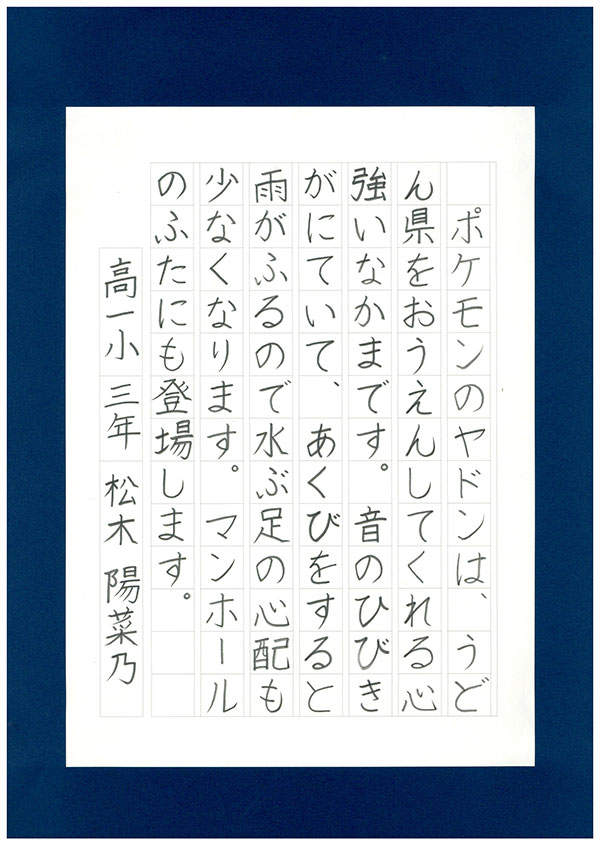 ポケモンのヤドンは、うど
ん県をおうえんしてくれる心
強いなかまです。音のひびき
がにていて、あくびをすると
雨がふるので水ぶ足の心配も
少なくなります。マンホール
のふたにも登場します。
高一小 三年 松木 陽菜乃